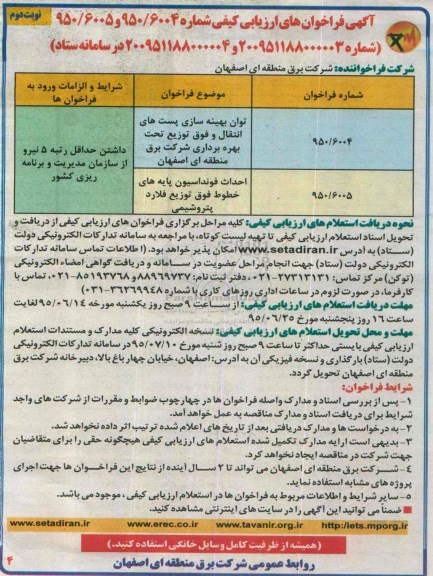 نوبت دوم
آگهی فراخوان های ارزیابی کیفی شماره ۹۵۰/۶۰۰۴ و ۹۵۰/۶۰۰۵
(شماره ۲۰۰۹۵۱۱۸۸۰۰۰۰۰۳ و ۲۰۰۹۵۱۱۸۸۰۰۰۰۰۴ در سامانه ستاد)
شرکت فراخواننده: شرکت برق منطقه ای اصفهان
شماره فراخوان
موضوع فراخوان
شرایط و الزامات ورود به فراخوان ها
۹۵۰/۶۰۰۴
توان بهینه سازی پست های انتقال و فوق توزیع تحت بهره برداری شرکت برق منطقه ای اصفهان
داشتن حداقل رتبه ۵ نیرو از سازمان مدیریت و برنامه ریزی کشور
۹۵۰/۶۰۰۵
احداث فونداسیون پایه های خطوط فوق توزیع فلارد پتروشیمی
نحوه دریافت استعلام های ارزیابی کیفی: کلیه مراحل برگزاری فراخوان های ارزیابی کیفی از دریافت و
تحویل اسناد استعلام ارزیابی کیفی تا تهیه لیست کوتاه، با مراجعه به سامانه تدارکات الکترونیکی دولت
(ستاد) به آدرس www.setadiran.ir امکان پذیر خواهد بود. (اطلاعات تماس سامانه تدارکات
الکترونیکی دولت (ستاد) جهت انجام مراحل عضویت در سامانه و دریافت گواهی امضاء الکترونیکی
(توکن) مرکز تماس: ۲۷۳۱۳۱۳۱-۰۲۱ دفتر ثبت نام: ۸۸۹۶۹۷۳۷ و ۸۵۱۹۳۷۶۸-۰۲۱، تماس با
کارفرما، در صورت لزوم در ساعات اداری روزهای کاری با شماره ۳۶۲۶۹۹۴۸-۰۳۱)
مهلت دریافت استعلام های ارزیابی کیفی: از ساعت ۹ صبح روز یکشنبه مورخه ۹۵/۰۶/۱۴ لغایت
ساعت ۱۶ روز پنجشنبه مورخ ۹۵/۰۶/۲۵
مهلت و محل تحویل استعلام های ارزیابی کیفی: نسخه الکترونیکی کلیه مدارک و مستندات استعلام
ارزیابی کیفی بایستی حداکثر تا ساعت ۹ صبح روز شنبه مورخ ۹۵/۰۷/۱۰ در سامانه تدارکات الکترونیکی
دولت (ستاد) بارگذاری و نسخه فیزیکی آن به آدرس: اصفهان، خیابان چهارباغ بالا، دبیرخانه شرکت برق
منطقه ای اصفهان تحویل گردد.
شرایط فراخوان:
۱- پس از بررسی اسناد و مدارک واصله فراخوان ها در چهارچوب ضوابط و مقررات از شرکت های واجد
شرایط برای دریافت اسناد و مدارک مناقصه به عمل خواهد آمد.
۲- به درخواست ها و مدارک دریافتی بعد از تاریخ های اعلام شده ترتیب اثر داده نخواهد شد.
۳- بدیهی است ارایه مدارک تکمیل شده استعلام های ارزیابی کیفی هیچگونه حقی را برای متقاضیان
جهت شرکت در مناقصه ایجاد نخواهد کرد.
۴- شرکت برق منطقه ای اصفهان می تواند تا ۲ سال آینده از نتایج این فراخوان ها جهت اجرای
پروژه های مشابه استفاده نماید.
۵- سایر شرایط و اطلاعات مربوط به فراخوان ها در استعلام ارزیابی کیفی، موجود می باشد.
ضمناً می توانید این آگهی را در سایت های اینترنتی مشاهده کنید.
www.setadiran.ir www.erec.co.ir www.tavanir.org.ir http:/iets.mporg.ir
(همیشه از ظرفیت کامل وسایل خانگی استفاده کنید.)
روابط عمومی شرکت برق منطقه ای اصفهان
۴